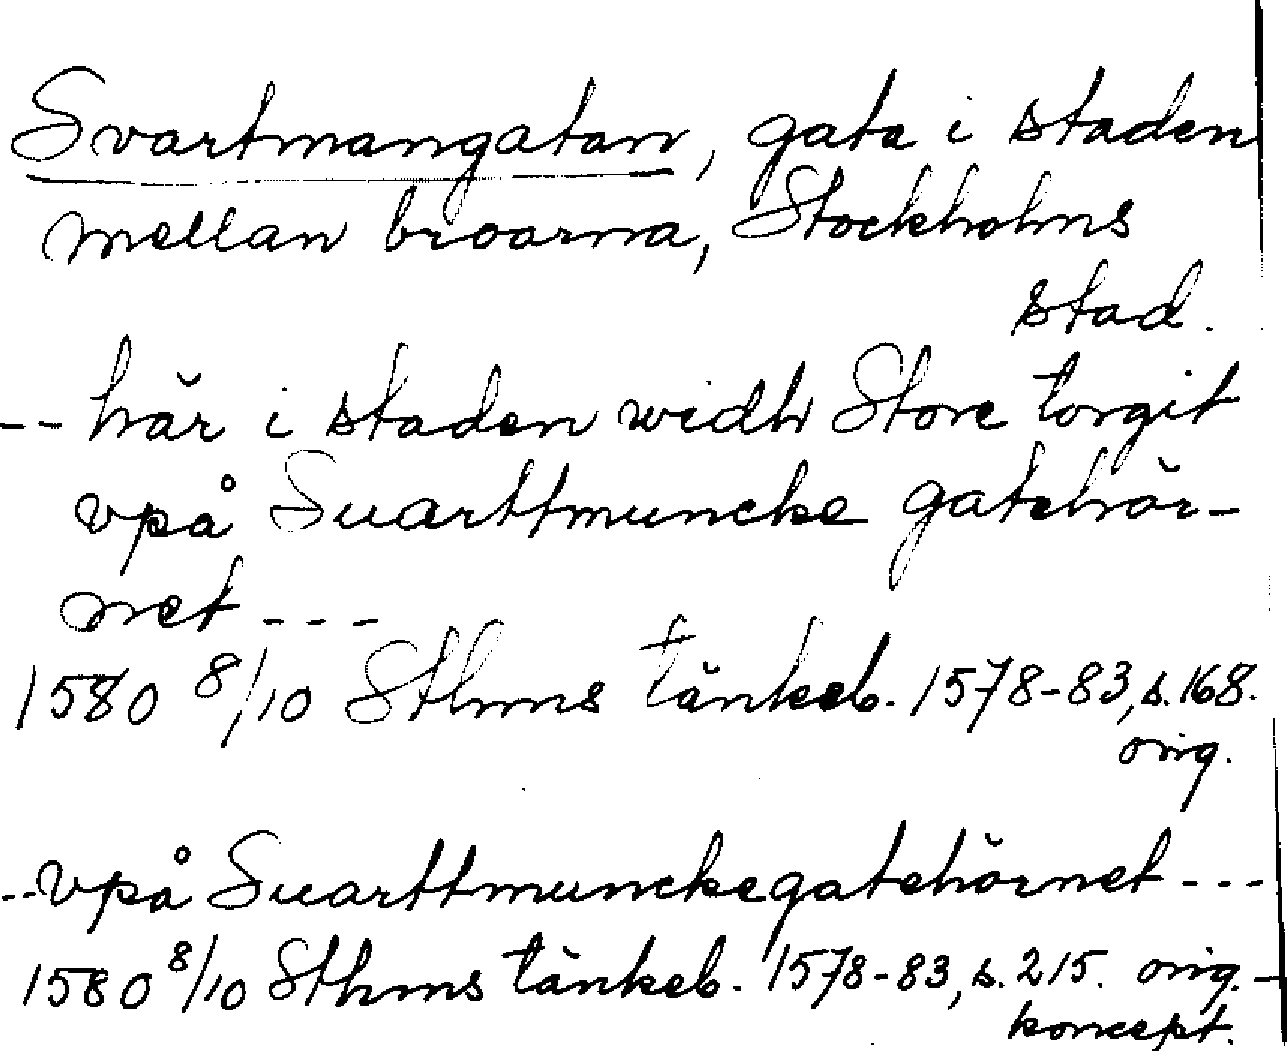 Svartmangatan, gata i staden
mellan broarna, Stockholms
stad.
-- här i staden widh Store torgit
vpå Suarttmuncke gatehör-
net ---
1580 8/10 Sthms tänkeb. 1578-83, s. 168.
orig.
-- vpå Suarttmunckegatehörnet ---
1580 8/10 Sthms tänkeb. 1578-83, s. 215. orig. -
koncept.